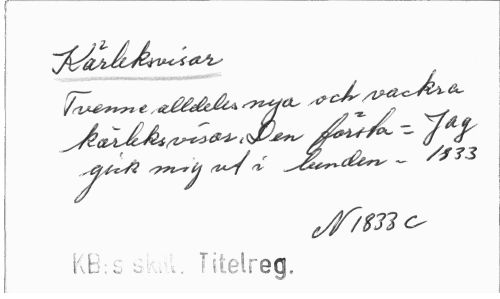 Kärleksvisor
Tvenne alldeles nya och vackra
kärleksvisor. Den första = Jag
gick mig ut i lunden - 1833
N 1833 c
KB:s skill. Titelreg.